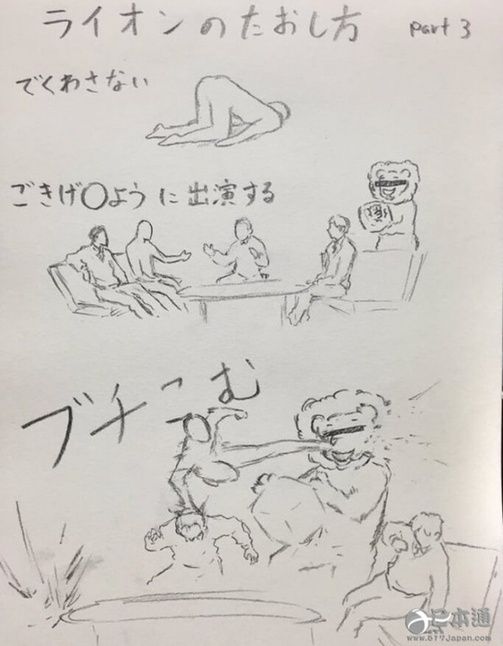 ライオンのたおし方 part 3
でくわさない
ごきげ〇ように出演する
ブチこむ
日本通
www.517Japan.com